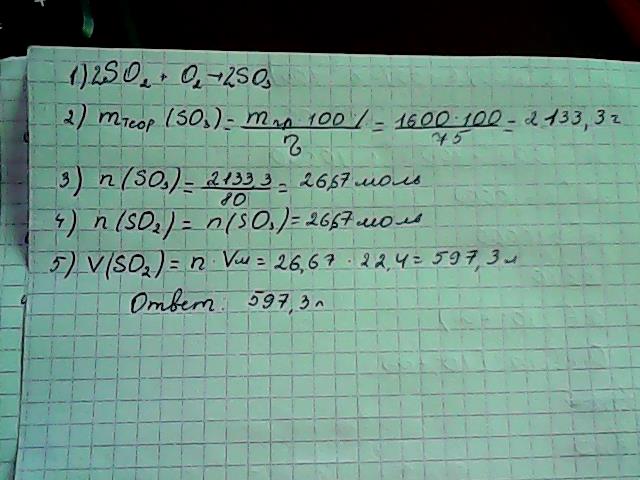 1) 2SO₂ + O₂ → 2SO₃
2) mтеор (SO₃) = mпр · 100% / η = 1600 · 100 / 75 = 2133,3 г
3) n(SO₃) = 2133,3 / 80 = 26,67 моль
4) n(SO₂) = n(SO₃) = 26,67 моль
5) V(SO₂) = n · Vм = 26,67 · 22,4 = 597,3 л
Ответ: 597,3 л